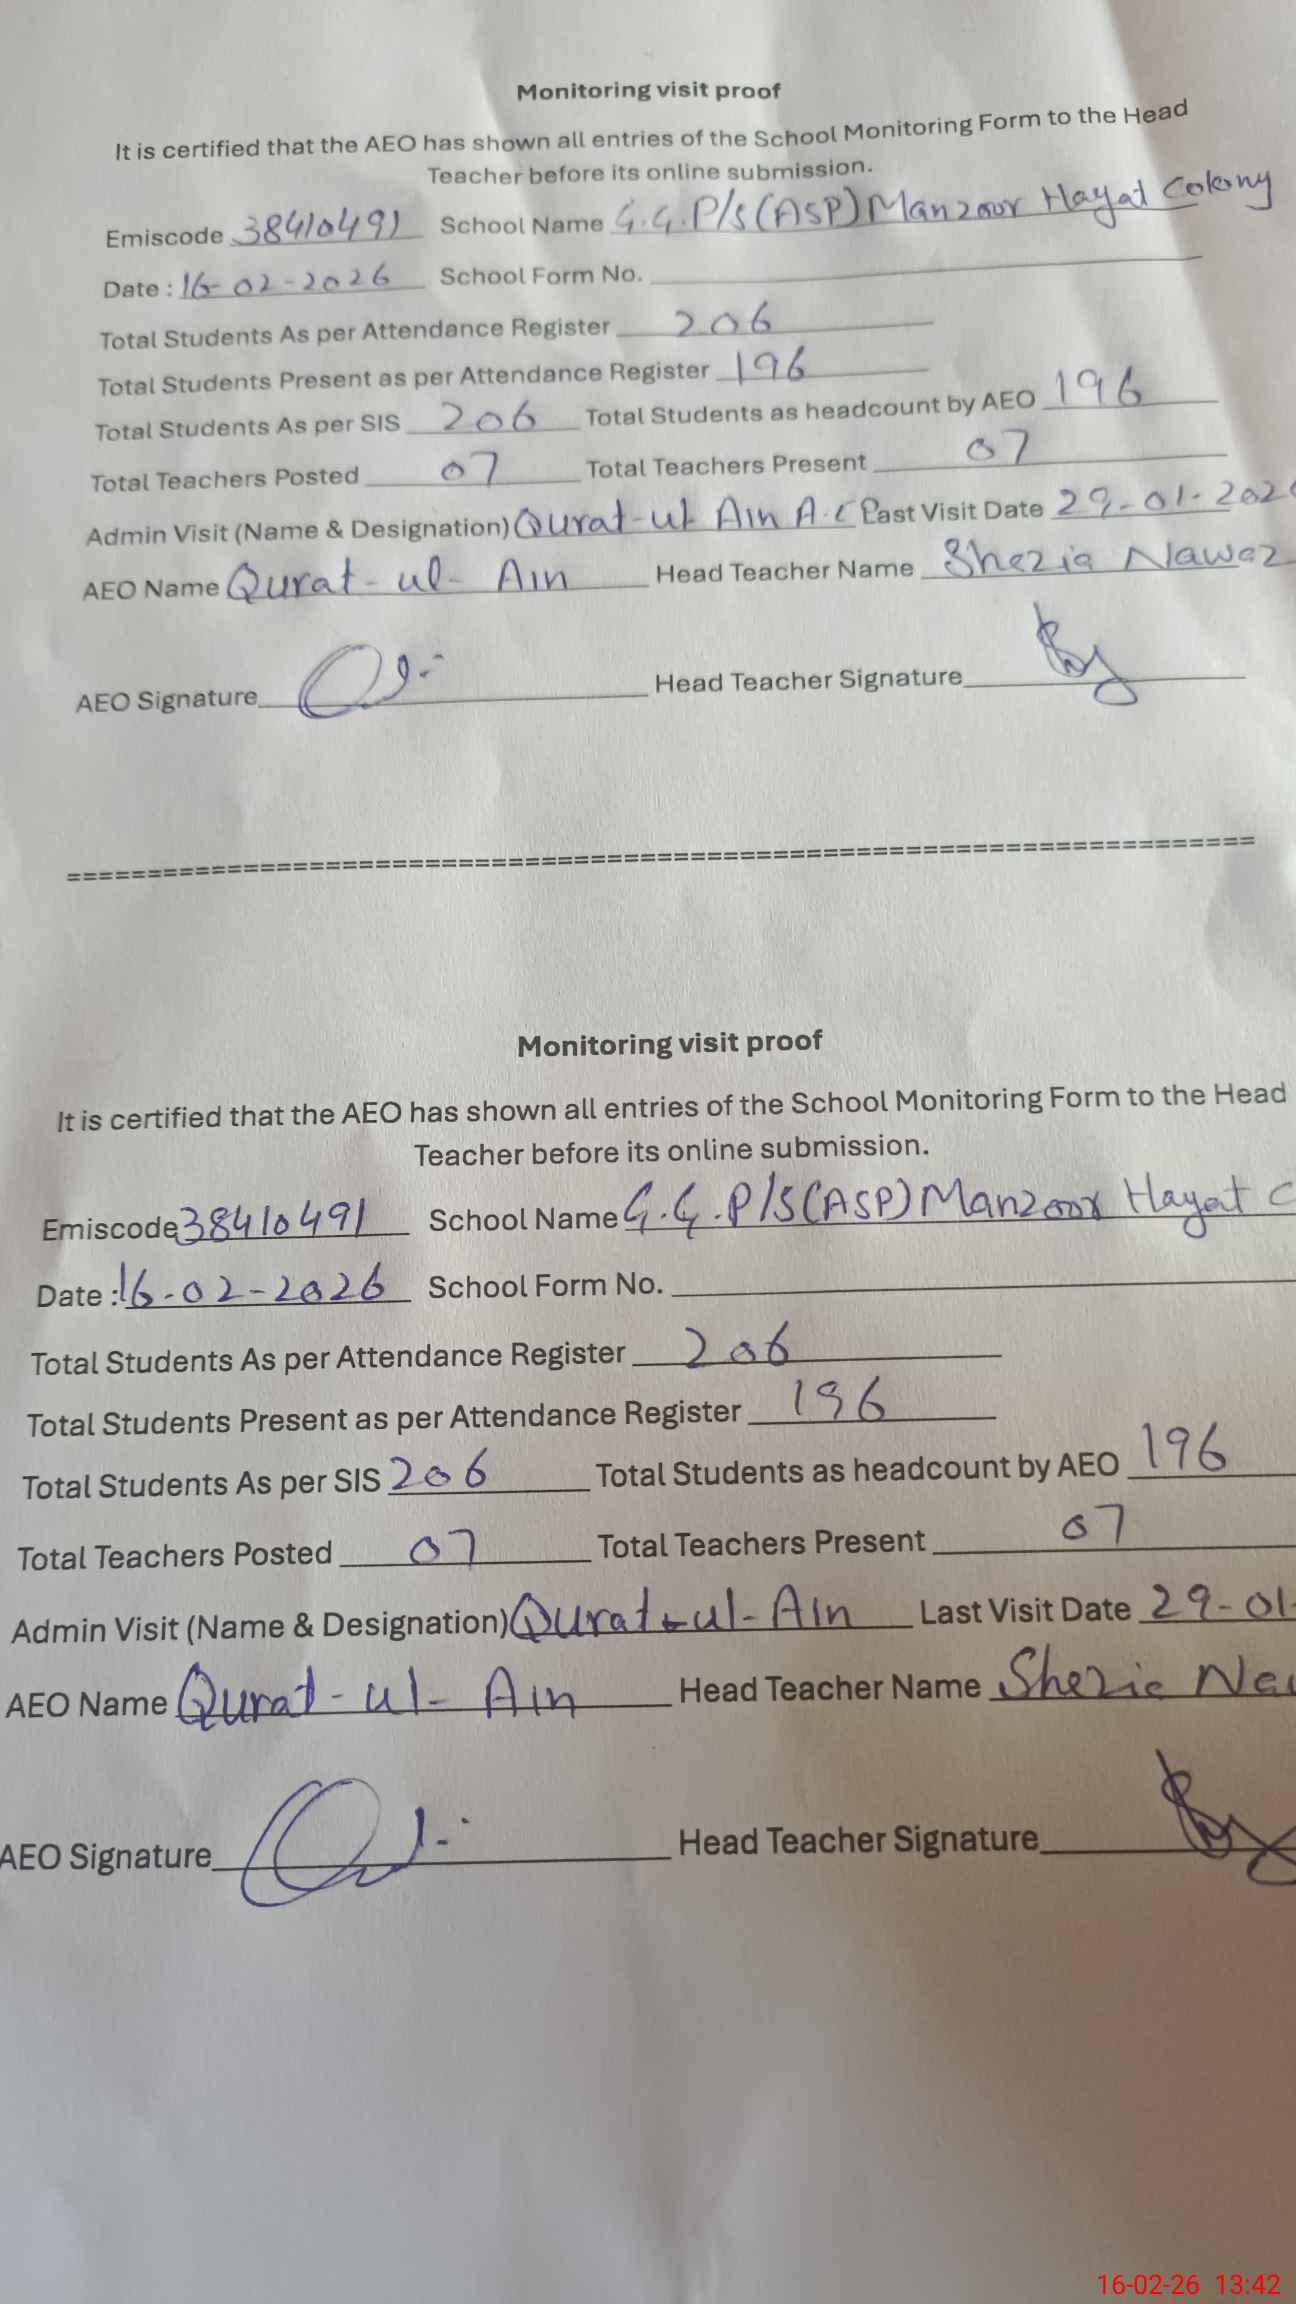 Monitoring visit proof
It is certified that the AEO has shown all entries of the School Monitoring Form to the Head
Teacher before its online submission.
Emiscode 38410491 School Name G.G.P/S(ASP) Manzoor Hayat Colony
Date : 16-02-2026 School Form No.
Total Students As per Attendance Register 206
Total Students Present as per Attendance Register 196
Total Students As per SIS 206 Total Students as headcount by AEO 196
Total Teachers Posted 07 Total Teachers Present 07
Admin Visit (Name & Designation) Qurat-ul Ain Last Visit Date 29-01-202
AEO Name Qurat-ul-Ain Head Teacher Name Shezia Nawaz
AEO Signature Head Teacher Signature
Monitoring visit proof
It is certified that the AEO has shown all entries of the School Monitoring Form to the Head
Teacher before its online submission.
Emiscode 38410491 School Name G.G.P/S(ASP) Manzoor Hayat C
Date : 16-02-2026 School Form No.
Total Students As per Attendance Register 206
Total Students Present as per Attendance Register 196
Total Students As per SIS 206 Total Students as headcount by AEO 196
Total Teachers Posted 07 Total Teachers Present 07
Admin Visit (Name & Designation) Qurat-ul-Ain Last Visit Date 29-01-
AEO Name Qurat-ul-Ain Head Teacher Name Shezia
AEO Signature Head Teacher Signature
16-02-26 13:42